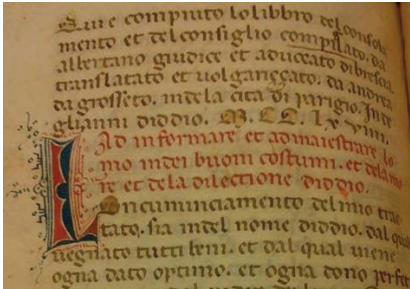 Qui e compiuto lo libbro del consola
mento et del consiglio compilato. da
albertano giudice et aduocato di brescia
translatato et uolgariççato. da andrea
da grosseto. indela cita di parigio. Inde
gli anni diddio. M. CC. lx viiii.
Ad informare et admaiestrare lo
mo indei buoni costumi. et dela mo
re et dela dilectione diddio.
Lo incuminciamento del mio trac
tato. sia indel nome diddio. dal qual
uegnato tutti beni. et dal qual uiene
ogna dato optimo. et ogna dono perfe